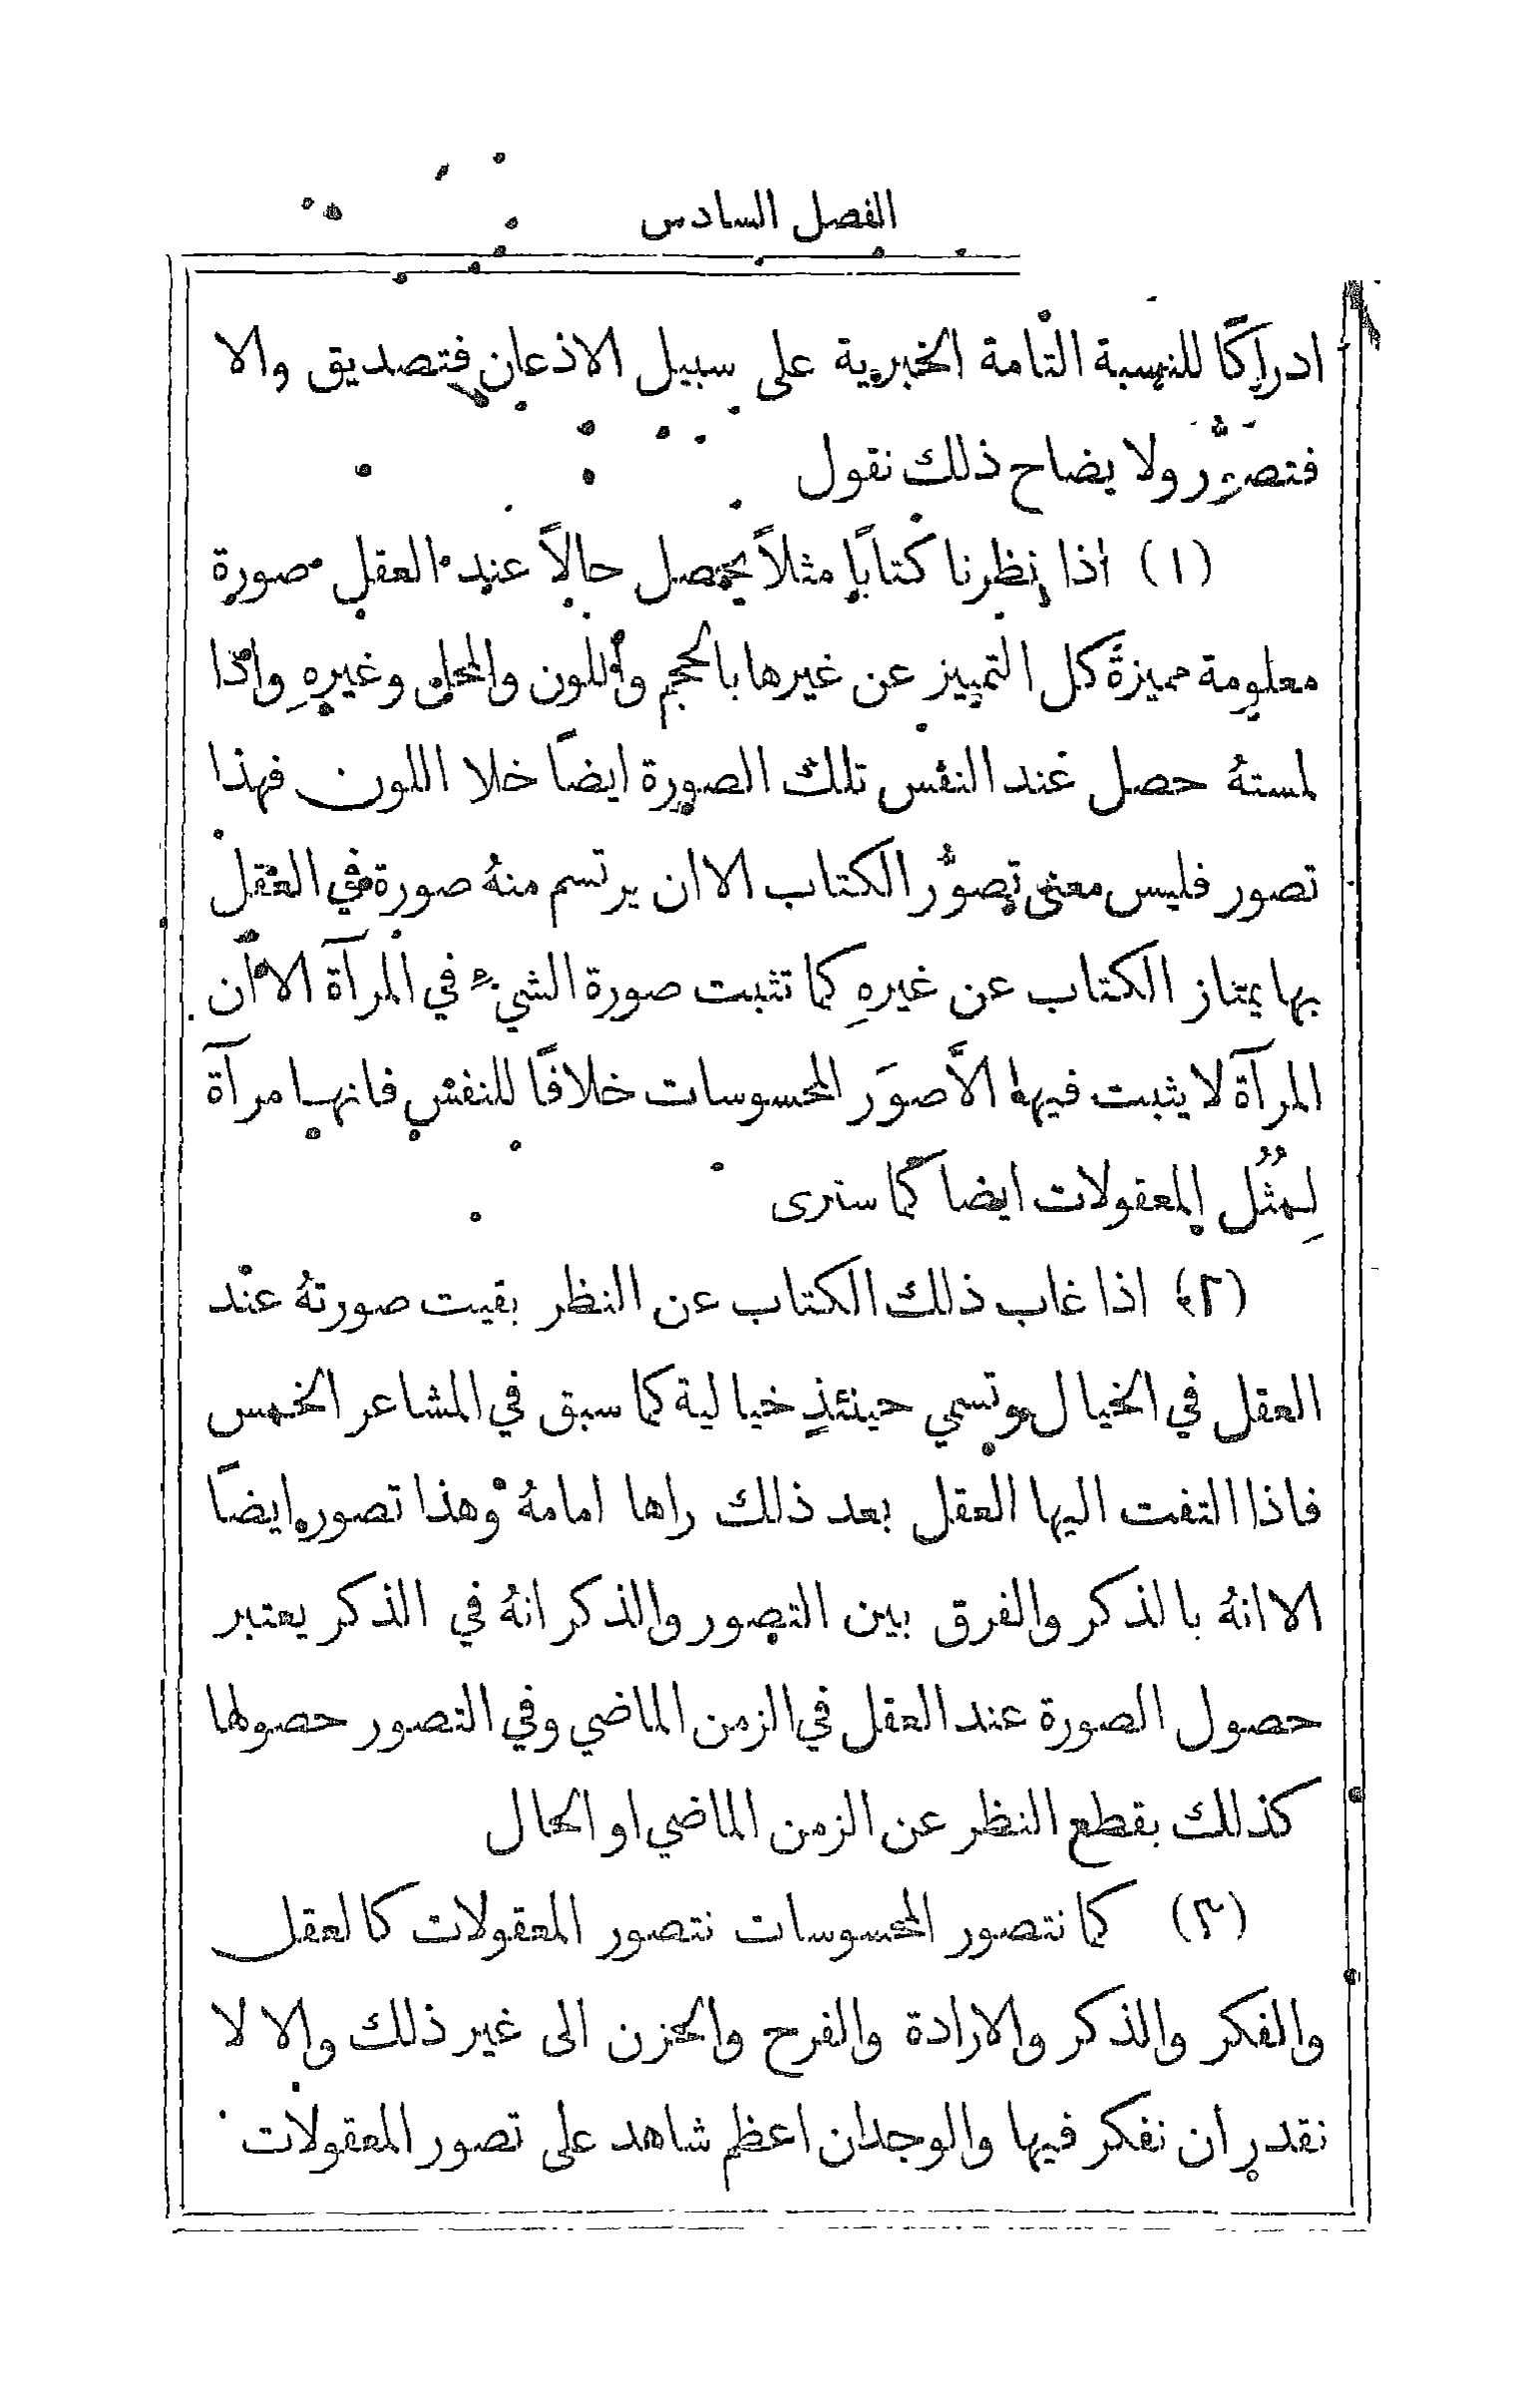 الفصل السادس
ادراكًا للنسبة التامة الخبرية على سبيل الاذعان فتصديق والا
فتصوُّر ولايضاح ذلك نقول
(١) اذا نظرنا كتابًا مثلاً يحصل حالاً عند العقل صورة
معلومة مميزةً كل التمييز عن غيرها بالحجم واللون والمحل وغيرهِ واذا
لمستهُ حصل عند النفس تلك الصورة ايضاً خلا اللون فهذا
تصور فليس معنى تصوُّر الكتاب الا ان يرتسم منهُ صورة في العقل
بها يمتاز الكتاب عن غيرهِ كما تثبت صورة الشيء في المرآة الا ان
المرآة لا يثبت فيها الَّا صوَر المحسوسات خلافًا للنفس فانها مرآة
لِمُثُل المعقولات ايضا كما سترى
(٢) اذا غاب ذلك الكتاب عن النظر بقيت صورتهُ عند
العقل في الخيال وتسمي حينئذٍ خيالية كما سبق في المشاعر الخمس
فاذا التفت اليها العقل بعد ذلك راها امامهُ وهذا تصور ايضاً
الا انهُ بالذكر والفرق بين التصور والذكر انهُ في الذكر يعتبر
حصول الصورة عند العقل في الزمن الماضي وفي التصور حصولها
كذلك بقطع النظر عن الزمن الماضي او الحال
(٣) كما نتصور المحسوسات نتصور المعقولات كالعقل
والفكر والذكر والارادة والفرح والحزن الى غير ذلك والا لا
نقدر ان نفكر فيها والوجدان اعظم شاهد على تصور المعقولات